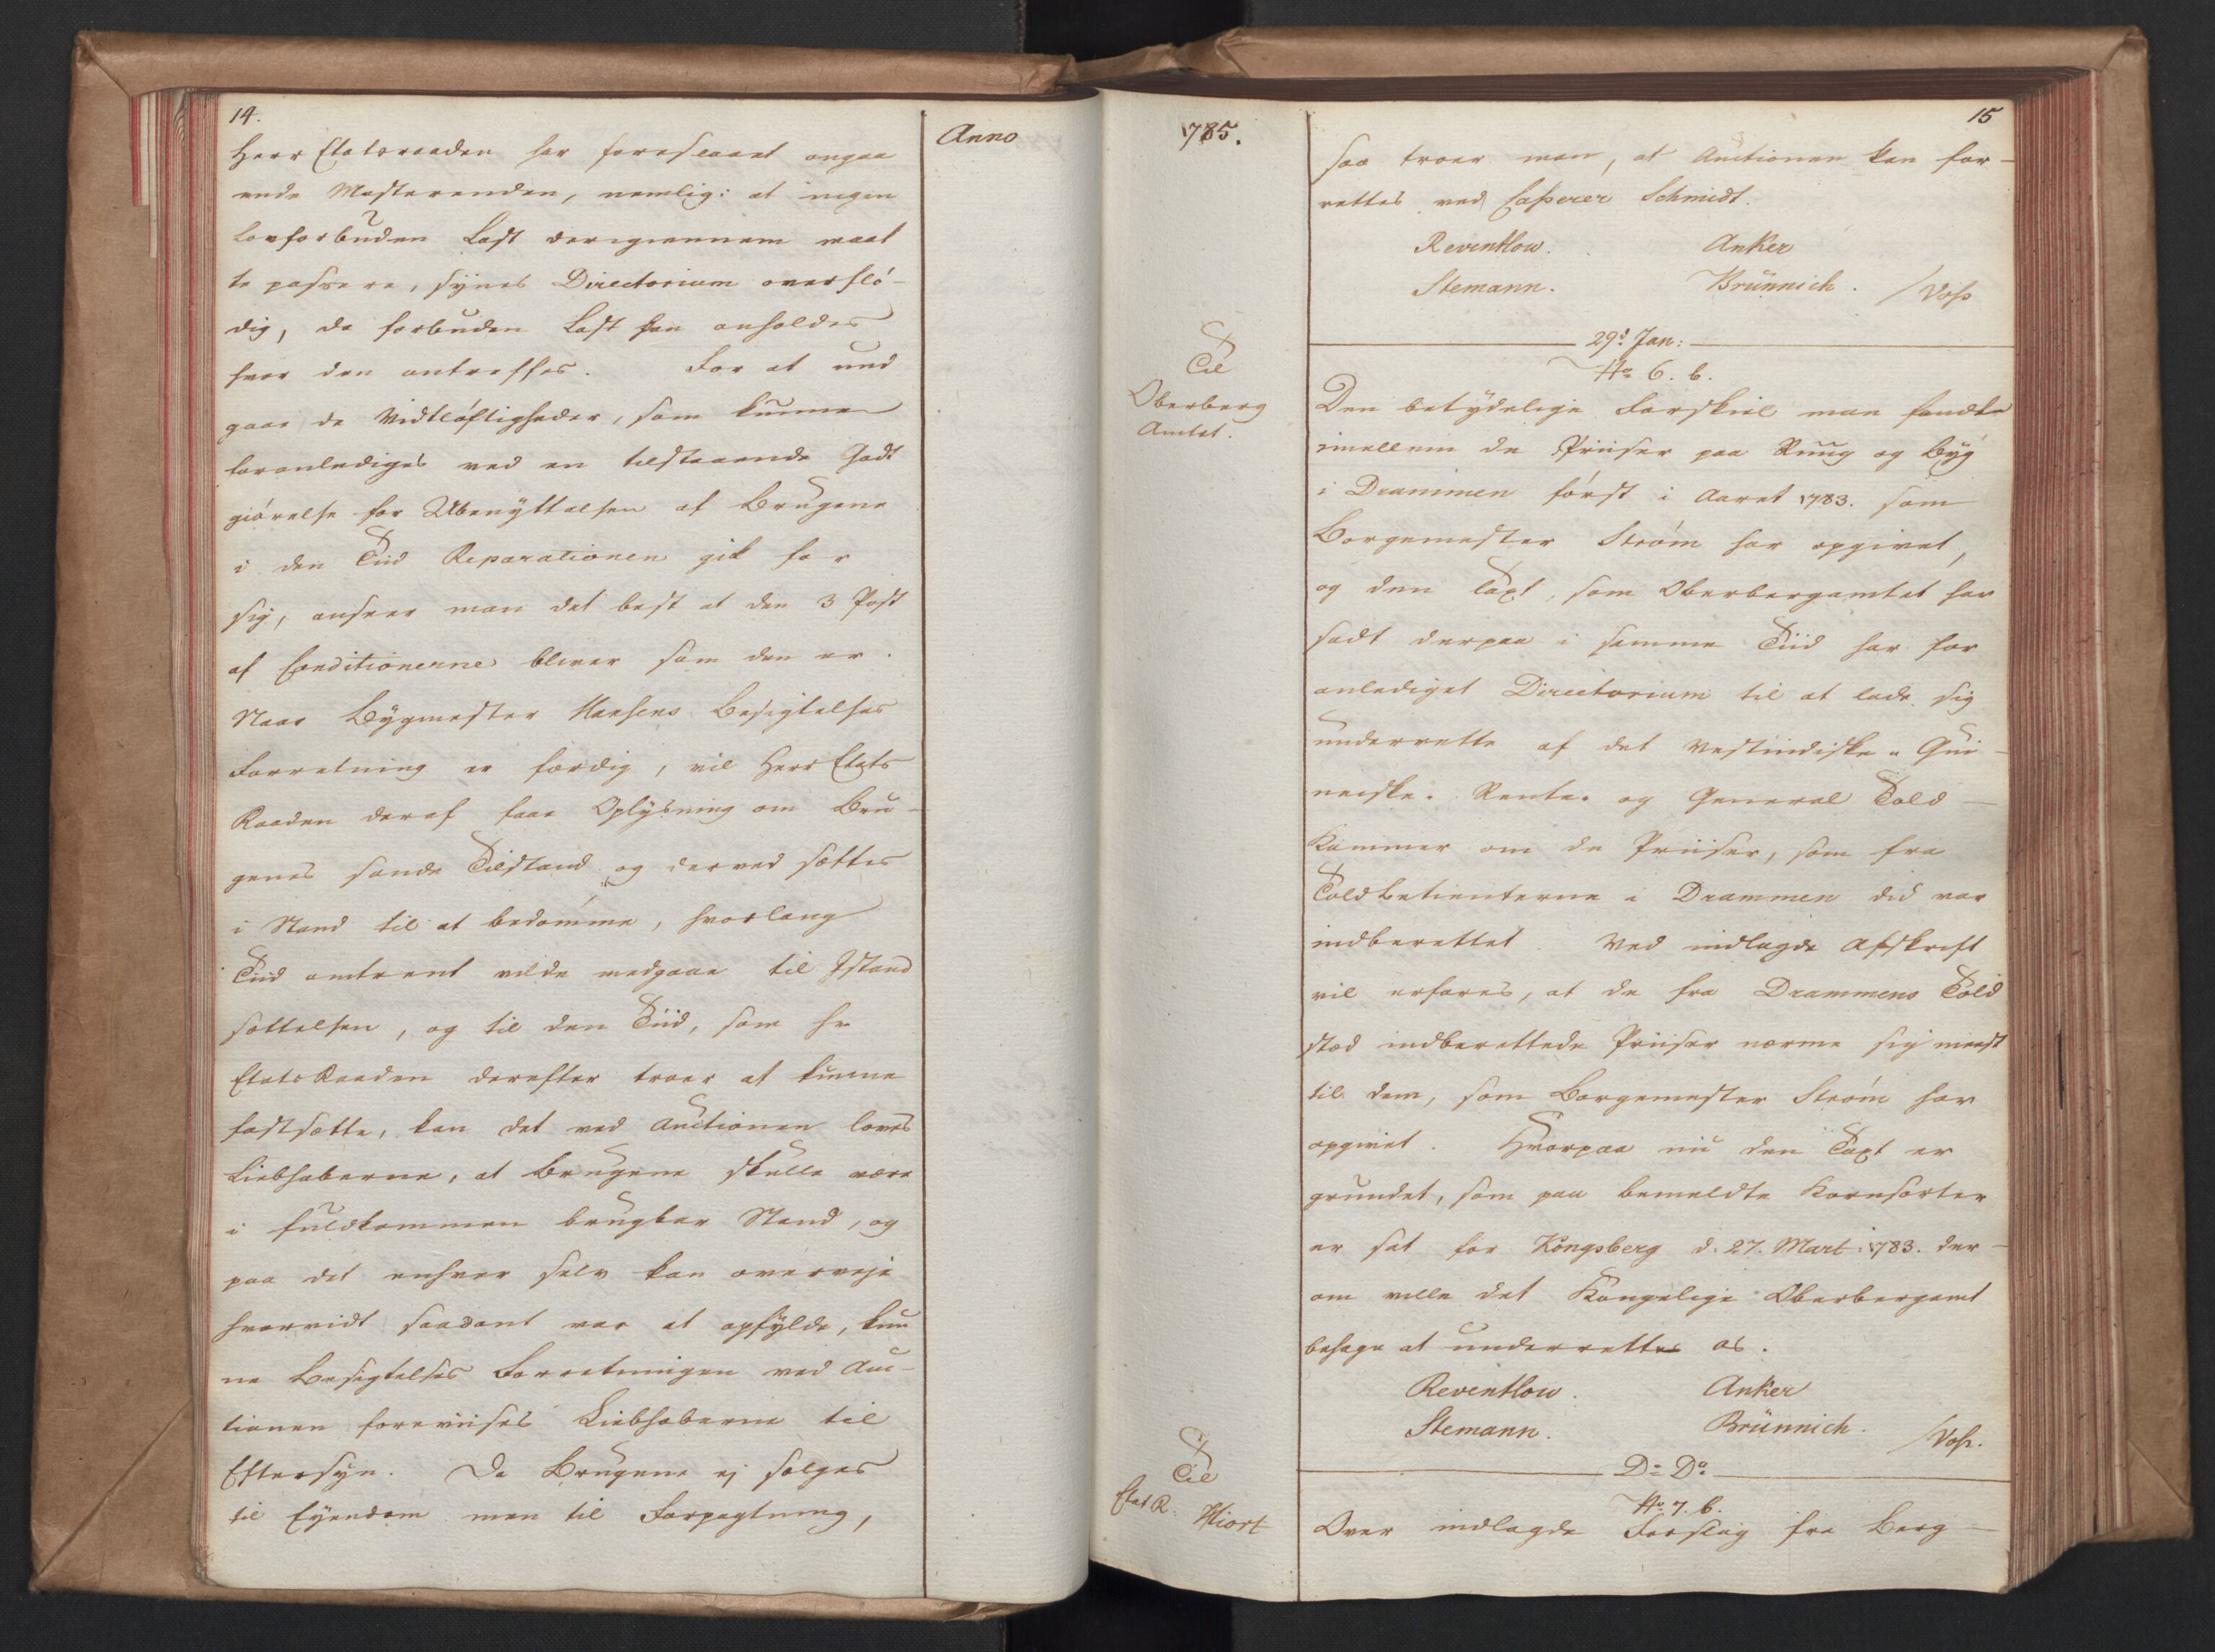 14.
Anno
Herr Etatsraaden har foreslaaet angaa
ende Masterenden, nemlig: at ingen
lovforbuden Last derigiennem maat
te passere, synes Directorium overflö-
dig, da forbuden Last kan anholdes
hvor den antreffes. For at und
gaae de Vidtløftigheder, som kunne
foranlediges ved en tilstaaende Godt
giörelse for Ubenyttelsen af Brugene
i den Tiid Reparationen gik for
sig, anseer man det best at den 3 Post
af Conditionerne bliver som den er.
Naar Bygmester Hansens Besigtelses
Forretning er færdig, vil Herr Etats
Raaden deraf faae Oplysning om Bru-
genes sande Tilstand og derved sættes
i Stand til at bedömme, hvorlang
Tiid omtrent vilde medgaae til Istand
sættelsen, og til den Tiid, som Hr
EtatsRaaden derefter troer at kunne
fastsætte, kan det ved Auctionen loves
Liebhaberne, at Brugene skulle være
i fuldkommen brugbar Stand, og
paa det enhver selv kan overveje
hvorvidt saadant var at opfylde, kun
ne Besigtelses Forretningen ved Auc-
tionen foreviises Liebhaberne til
Eftersyn. Da Brugene ej sælges
til Eyendom men til Forpagtning,
1785.
15
saa troer man, at Auctionen kan for-
rettes ved Casserer Schmidt.
Reventlow. Anker
Stemann. Brünnich. /Voss
29d Jan:
No 6. b.
Til
Oberberg
Amtet.
Den betydelige Forskiel man fandte
imellem de Priiser paa Ruug og Byg
i Drammen först i Aaret 1783. som
Borgemester Ström har opgivet,
og den Taxt, som Oberbergamtet har
sadt derpaa i samme Tiid har for
anlediget Directorium til at lade sig
underrette af det Vestindiske- Gui-
neiske- Rente- og General Told-
Kammer om de Priiser, som fra
Toldbetienterne i Drammen did var
indberettet. Ved indlagde Afskrift
vil erfares, at de fra Drammens Told
sted indberettede Priiser nærme sig meest
til dem, som Borgemester Ström har
opgivet. Hvorpaa nu den Taxt er
grundet, som paa bemeldte Kornsorter
er sat for Kongsberg d: 27. Mart: 1783. der-
om ville det Kongelige Oberbergamt
behage at underrette os.
Reventlow. Anker
Stemann. Brünnich. /Voss.
Do Do
No 7. b.
Til
Etat R. Hiort
Over indlagde Forslag fra Berg-